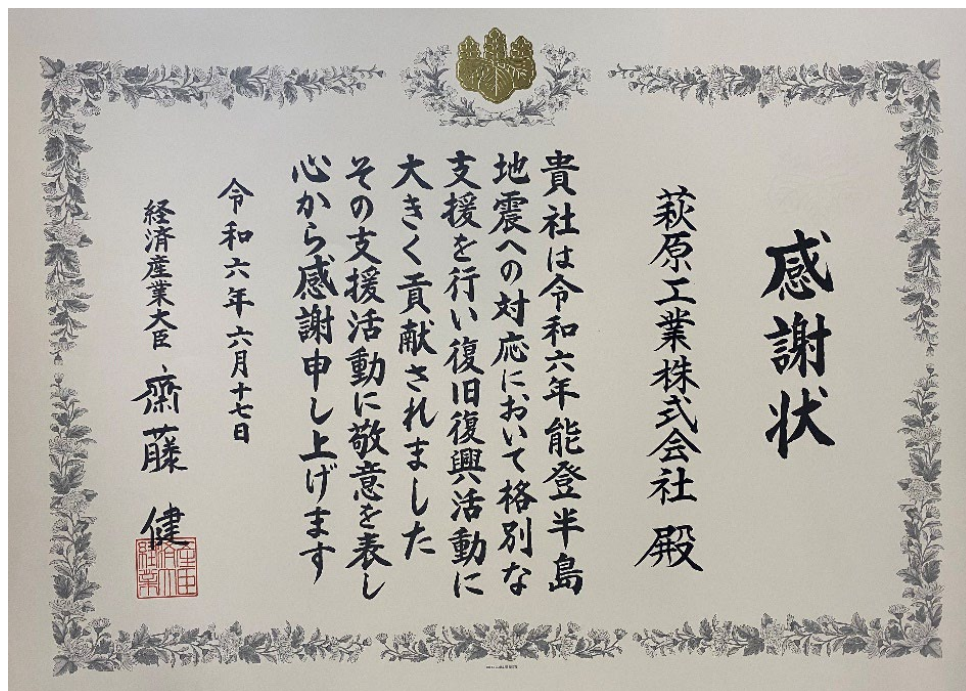 感謝状
萩原工業株式会社 殿
貴社は令和六年能登半島
地震への対応において格別な
支援を行い復旧復興活動に
大きく貢献されました
その支援活動に敬意を表し
心から感謝申し上げます
令和六年六月十七日
経済産業大臣 齋藤 健